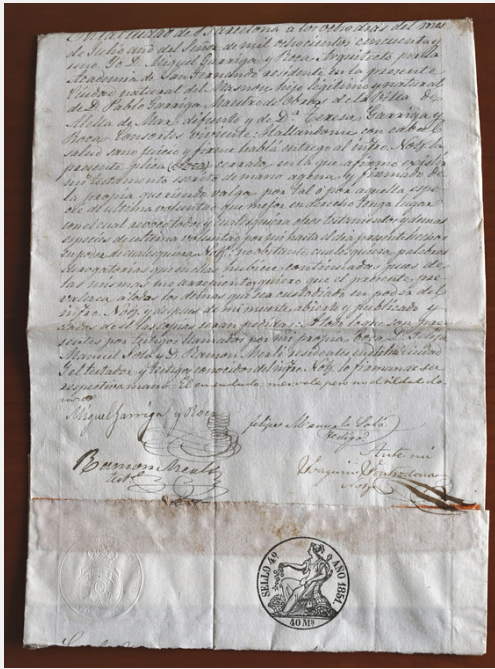 ciudad de Barcelona a los ocho dias del mes
de Julio año del Señor de mil ochocientos cincuenta y
uno. Yo D. Miguel Garriga y Roca Arquitecto por la
Academia de San Fernando residente en la presente
Ciudad natural del Masnou hijo legitimo y natural
de D. Pablo Garriga Maestro de Obras de la Villa de
Alella de Mar, difunto y de Dª Teresa Garriga y
Roca Consortes viviente Hallandome con cabal
salud sano juicio y firme habla entrego al infro Noty. la
presente plica cerrada en la que afirmo existir
mi testamento escrito de mano agena y firmado de
la propia queriendo valga por tal ó por aquella espe-
cie de ultima voluntad que mejor en derecho tenga lugar
con el cual revoco todos y cualesquiera otros testamentos y demas
especies de ultima voluntad por mi hasta el dia presente hechos
en poder de cualesquiera Notº no obstante cualesquiera palabras
derogatorias que en ellas hubiere continuadas pues de
las mismas me arrepiento, quiero que el presente pre-
valezca a todas las demas quedara custodiada en poder del
infro Noty. y despues de mi muerte abierto y publicado
dadas de él las copias seran pedidas. A todo lo que son pre-
sentes por testigos llamados por mi propia boca D. Felipe
Manuel Solá y D. Ramon residentes en dicha ciudad
Y el testador y testigos conocidos del infro Noty. lo firman de su
respectiva mano. El enmendado
Miguel Garriga y Roca
Felipe Manuel Solá
testigo
Ramon
testº
Ante mi
Joaquin
Noty.
SELLO 4º AÑO 1851.
40 Mˢ